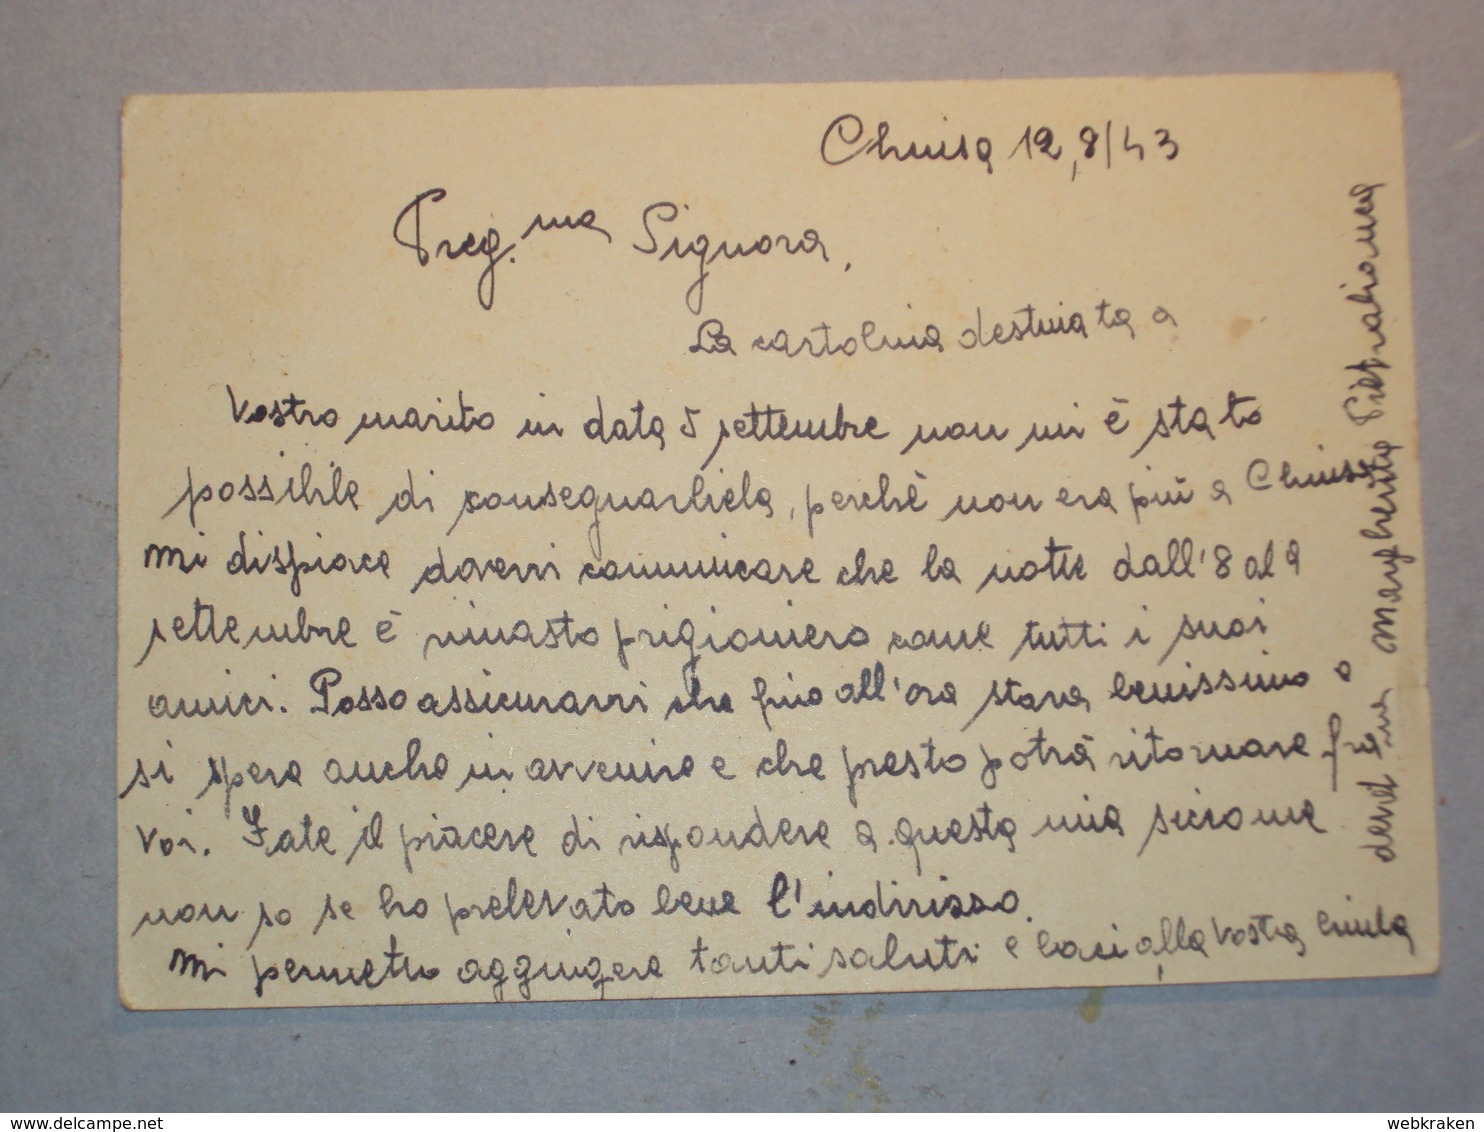 Chiusa 12,8/43
Preg.ma Signora,
La cartolina destinata a
Vostro marito in data 5 settembre non mi è stato
possibile di consegnarliela, perché non era più a Chiusa
mi dispiace doverri comunicare che la notte dall'8 al 9
settembre è rimasto prigioniero come tutti i suoi
amici. Posso assicurarvi che fino all'ora stava benissimo e
si spera anche in avvenire e che presto potrà ritornare fra
voi. Fate il piacere di rispondere a questa mia siccome
non so se ho prelevato bene l'indirisso.
Mi permetto aggiungere tanti saluti e baci alla vostra bimba
Margherita Pietrabianca
webkraken